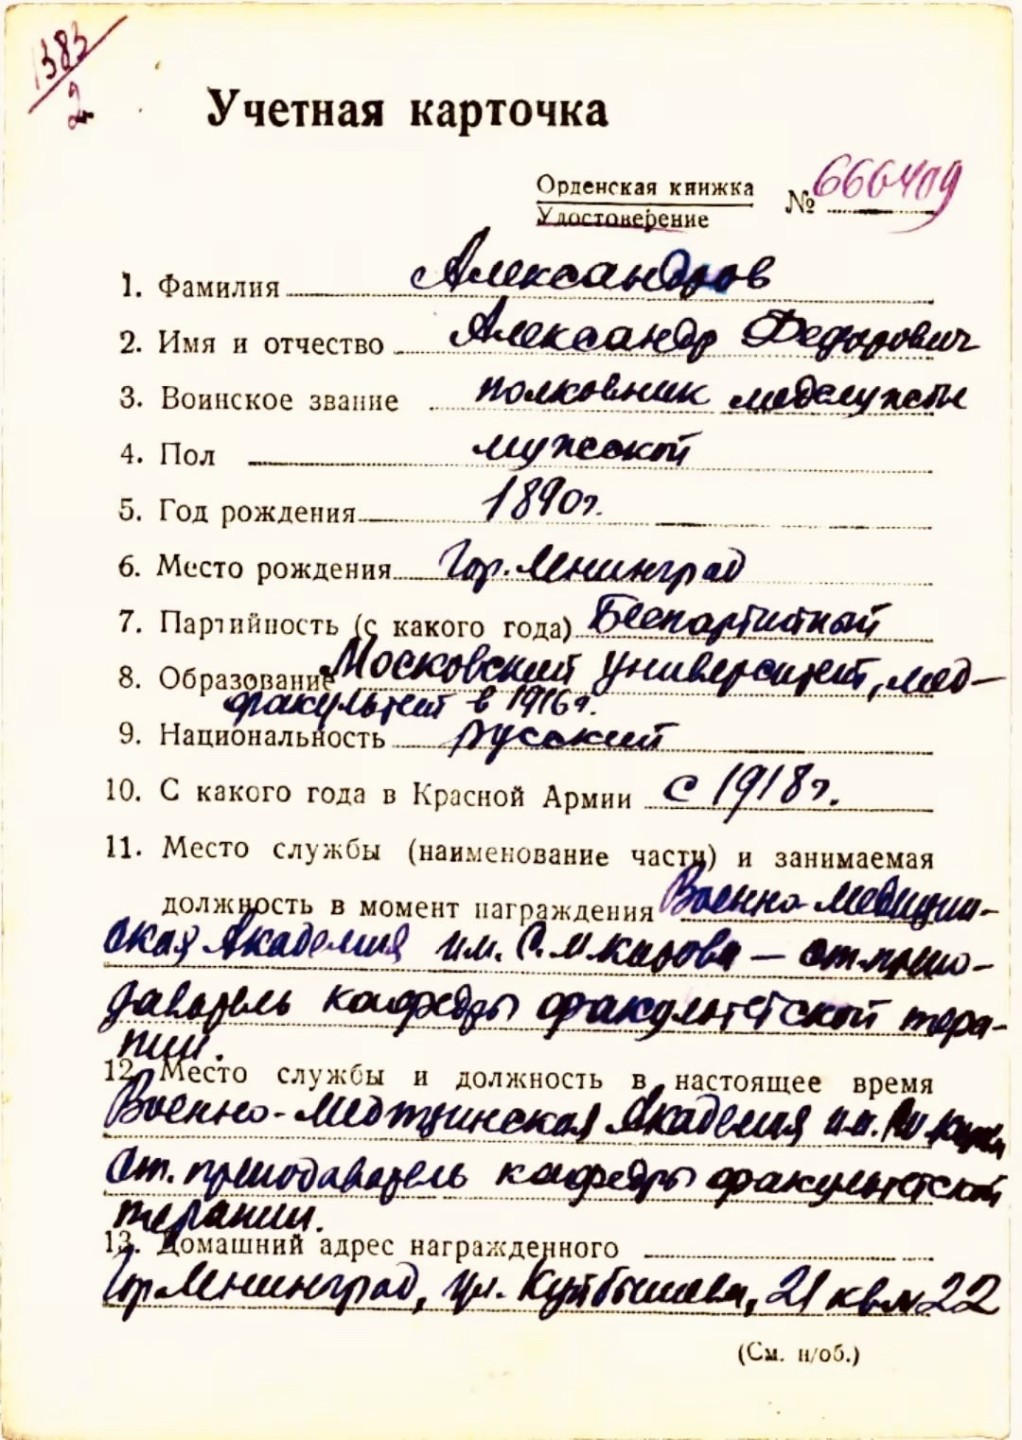 1383
2
Учетная карточка
Орденская книжка
Удостоверение
№ 666409
1. Фамилия Александров
2. Имя и отчество Александр Федорович
3. Воинское звание полковник медслужбы
4. Пол мужской
5. Год рождения 1890г.
6. Место рождения Гор. Ленинград
7. Партийность (с какого года) Беспартийный
8. Образование Московский университет, мед-
факультет в 1916г.
9. Национальность русский
10. С какого года в Красной Армии с 1918г.
11. Место службы (наименование части) и занимаемая
должность в момент награждения Военно-медицин-
ская Академия им. С.М.Кирова — ст.препо-
даватель кафедры факультетской тера-
пии.
12. Место службы и должность в настоящее время
Военно-медицинская Академия им. Кирова
ст. преподаватель кафедры факультетской
терапии.
13. Домашний адрес награжденного
Гор Ленинград, ул. Куйбышева, 21 кв.№22
(См. н/об.)